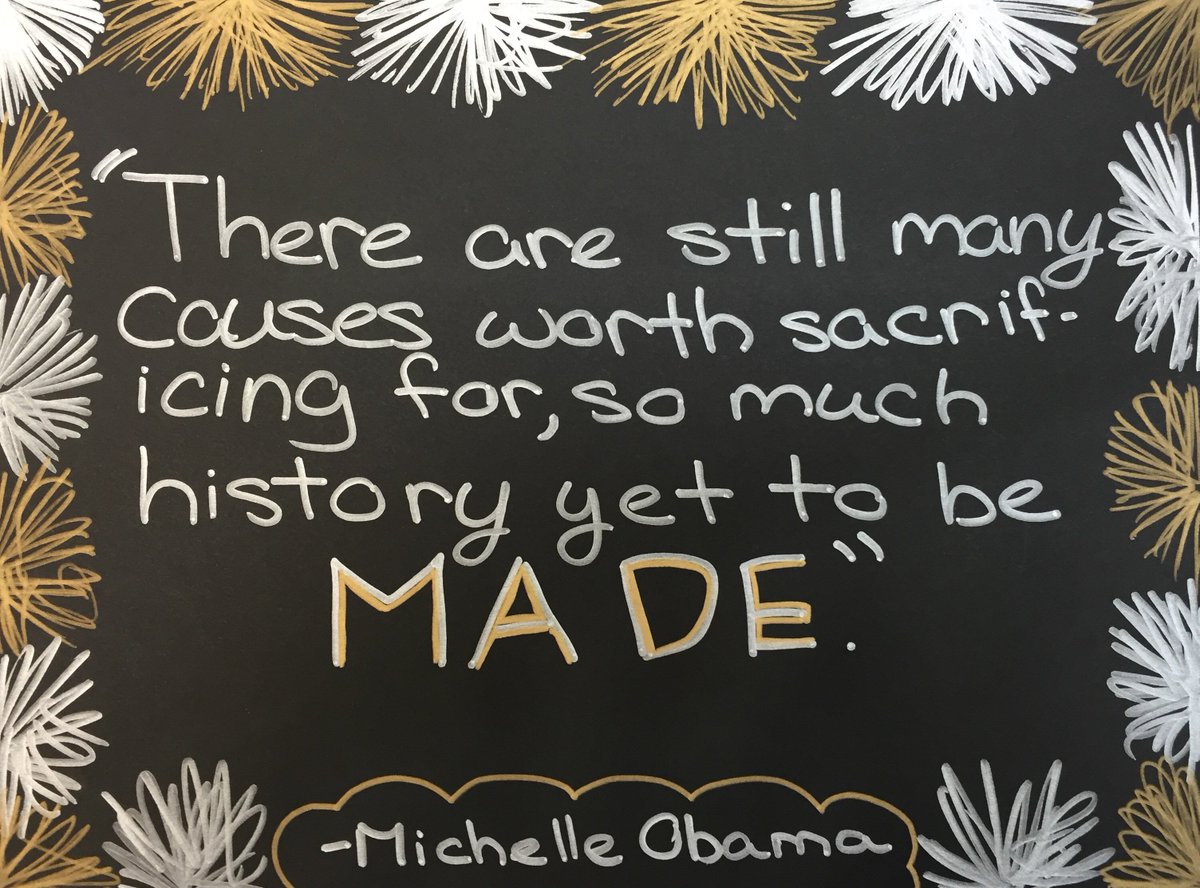 "There are still many
causes worth sacrif-
icing for, so much
history yet to be
MADE".
-Michelle Obama